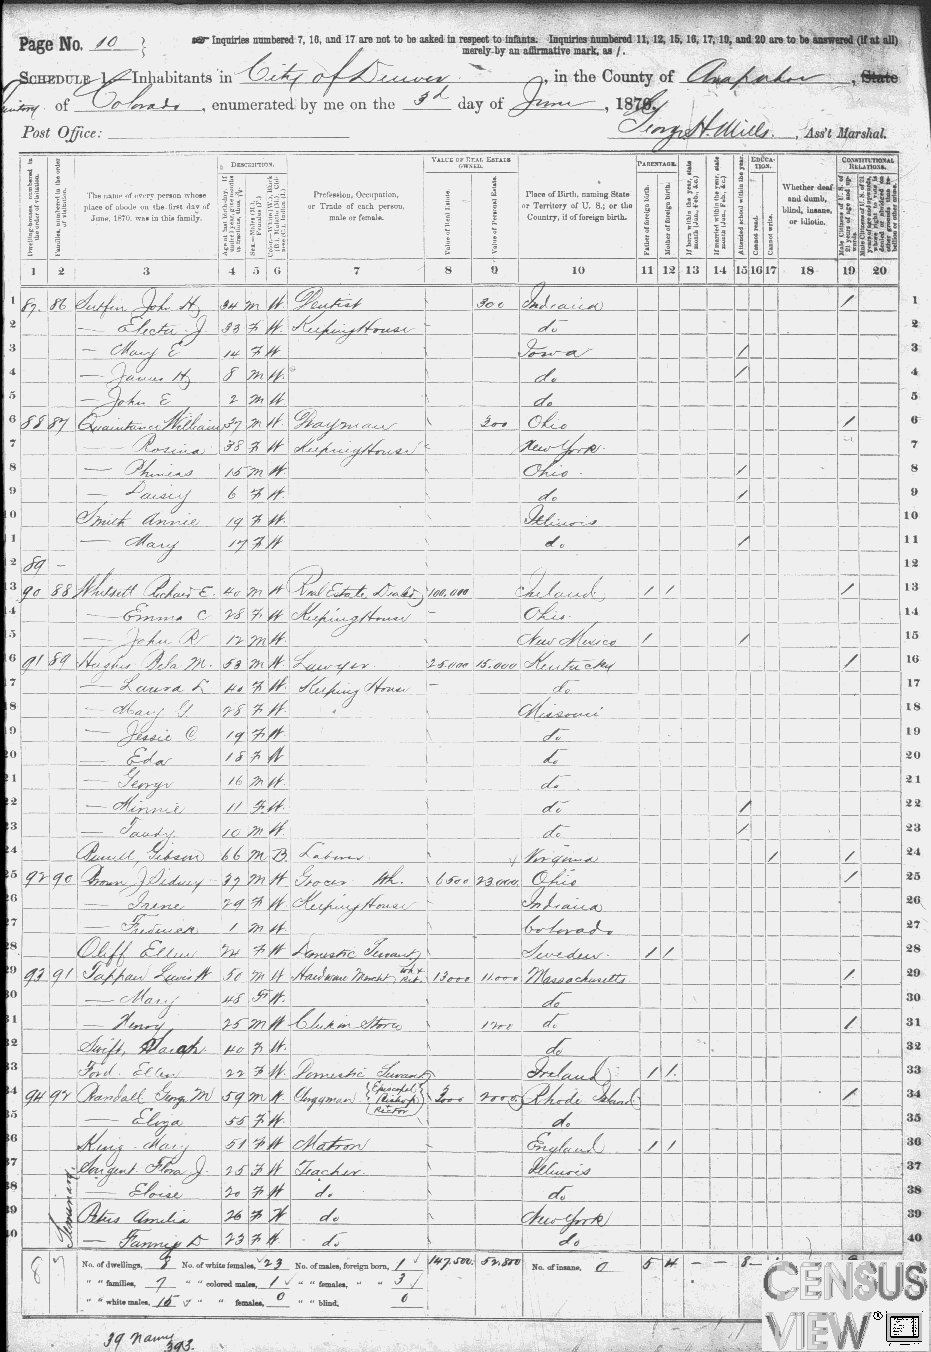 Page No. 10
☞ Inquiries numbered 7, 16, and 17 are not to be asked in respect to infants. Inquiries numbered 11, 12, 15, 16, 17, 19, and 20 are to be answered (if at all)
merely by an affirmative mark, as /.
SCHEDULE 1.—Inhabitants in City of Denver, in the County of Arapahoe, State
Territory of Colorado, enumerated by me on the 3d day of June, 1870.
Post Office:
George H. Mills, Ass't Marshal.
DESCRIPTION. VALUE OF REAL ESTATE OWNED. PARENTAGE. EDUCATION. CONSTITUTIONAL RELATIONS.
Dwelling-houses, numbered in the order of visitation.
Families, numbered in the order of visitation.
The name of every person whose place of abode on the first day of June, 1870, was in this family.
Profession, Occupation, or Trade of each person, male or female.
Value of Real Estate.
Value of Personal Estate.
Place of Birth, naming State or Territory of U. S.; or the Country, if of foreign birth.
Father of foreign birth.
Mother of foreign birth.
Attended school within the year.
Cannot read.
Cannot write.
Whether deaf and dumb, blind, insane, or idiotic.
1 2 3 4 5 6 7 8 9 10 11 12 13 14 15 16 17 18 19 20
1 87 86 John H 34 M W Dentist 300 Indiana / 1
2 — Electa J 33 F W Keeping House do 2
3 — Mary E 14 F W Iowa / 3
4 — James H 8 M W do / 4
5 — John E 2 M W do 5
6 88 87 Quaintance William 37 M W Drayman 200 Ohio / 6
7 — Rosina 38 F W Keeping House New York 7
8 — Phineas 15 M W Ohio / 8
9 — Daisey 6 F W do / 9
10 Smith Annie 19 F W Illinois 10
11 — Mary 17 F W do / 11
12 89 — 12
13 90 88 Whitsett Richard E. 40 M W Real Estate Dealer 100,000 Ireland / / / 13
14 — Emma C 28 F W Keeping House Ohio 14
15 — John R 12 M W New Mexico / / 15
16 91 89 Hughes Bela M. 53 M W Lawyer 25,000 15,000 Kentucky / 16
17 — Laura L 40 F W Keeping House do 17
18 — Mary G. 28 F W Missouri 18
19 — Jessie C 19 F W do 19
20 — Eda 18 F W do 20
21 — George 16 M W do 21
22 — Minnie 11 F W do / 22
23 — Tandy 10 M W do / 23
24 Gibson 66 M B Laborer Virginia / / 24
25 92 90 Brown J Sidney 37 M W Grocer Wh. 6500 23,000 Ohio / 25
26 — Irene 29 F W Keeping House Indiana 26
27 — Frederick 1 M W Colorado 27
28 Oliff Ellen 24 F W Domestic Servant Sweden / / 28
29 93 91 Tappan Lewis W 50 M W Hardware Mercht Wh & Ret. 13000 11,000 Massachusetts / 29
30 — Mary 45 F W do 30
31 — Henry 25 M W Clerk in Store 1200 do / 31
32 Swift, Sarah 40 F W do 32
33 Ford Ellen 22 F W Domestic Servant Ireland / / 33
34 94 92 Randall George M 59 M W Clergyman Episcopal Bishop Rector 3000 2000 Rhode Island / 34
35 — Eliza 55 F W do 35
36 King Mary 51 F W Matron England / / 36
37 Sargent Flora J. 25 F W Teacher Illinois 37
38 — Eloise 20 F W do do 38
39 Peters Amelia 26 F W do New York 39
40 — Fannie D 23 F W do do 40
No. of dwellings, 8 No. of white females, 23 No. of males, foreign born, 1 147,500 52,800 No. of insane, 0 5 4 — — 8 —
" " families, 7 " " colored males, 1 " " females, " " 3
" " white males, 15 " " " females, 0 " " blind, 0
39 names
393
CENSUS
VIEW